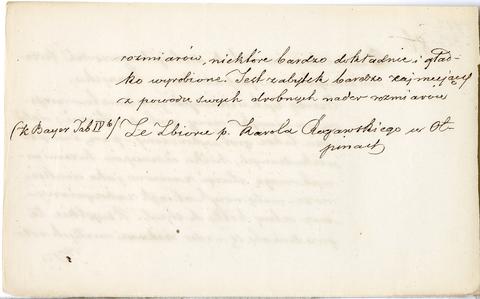 rozmiarów, niektóre bardzo dokładnie i gład-
ko wyrobione. Jest zabytek bardzo zajmujący
z powodu swych drobnych nader rozmiarów
(K Bayer Tab IV 6) Ze Zbioru p. Karola Rogawskiego w Oł-
pinach